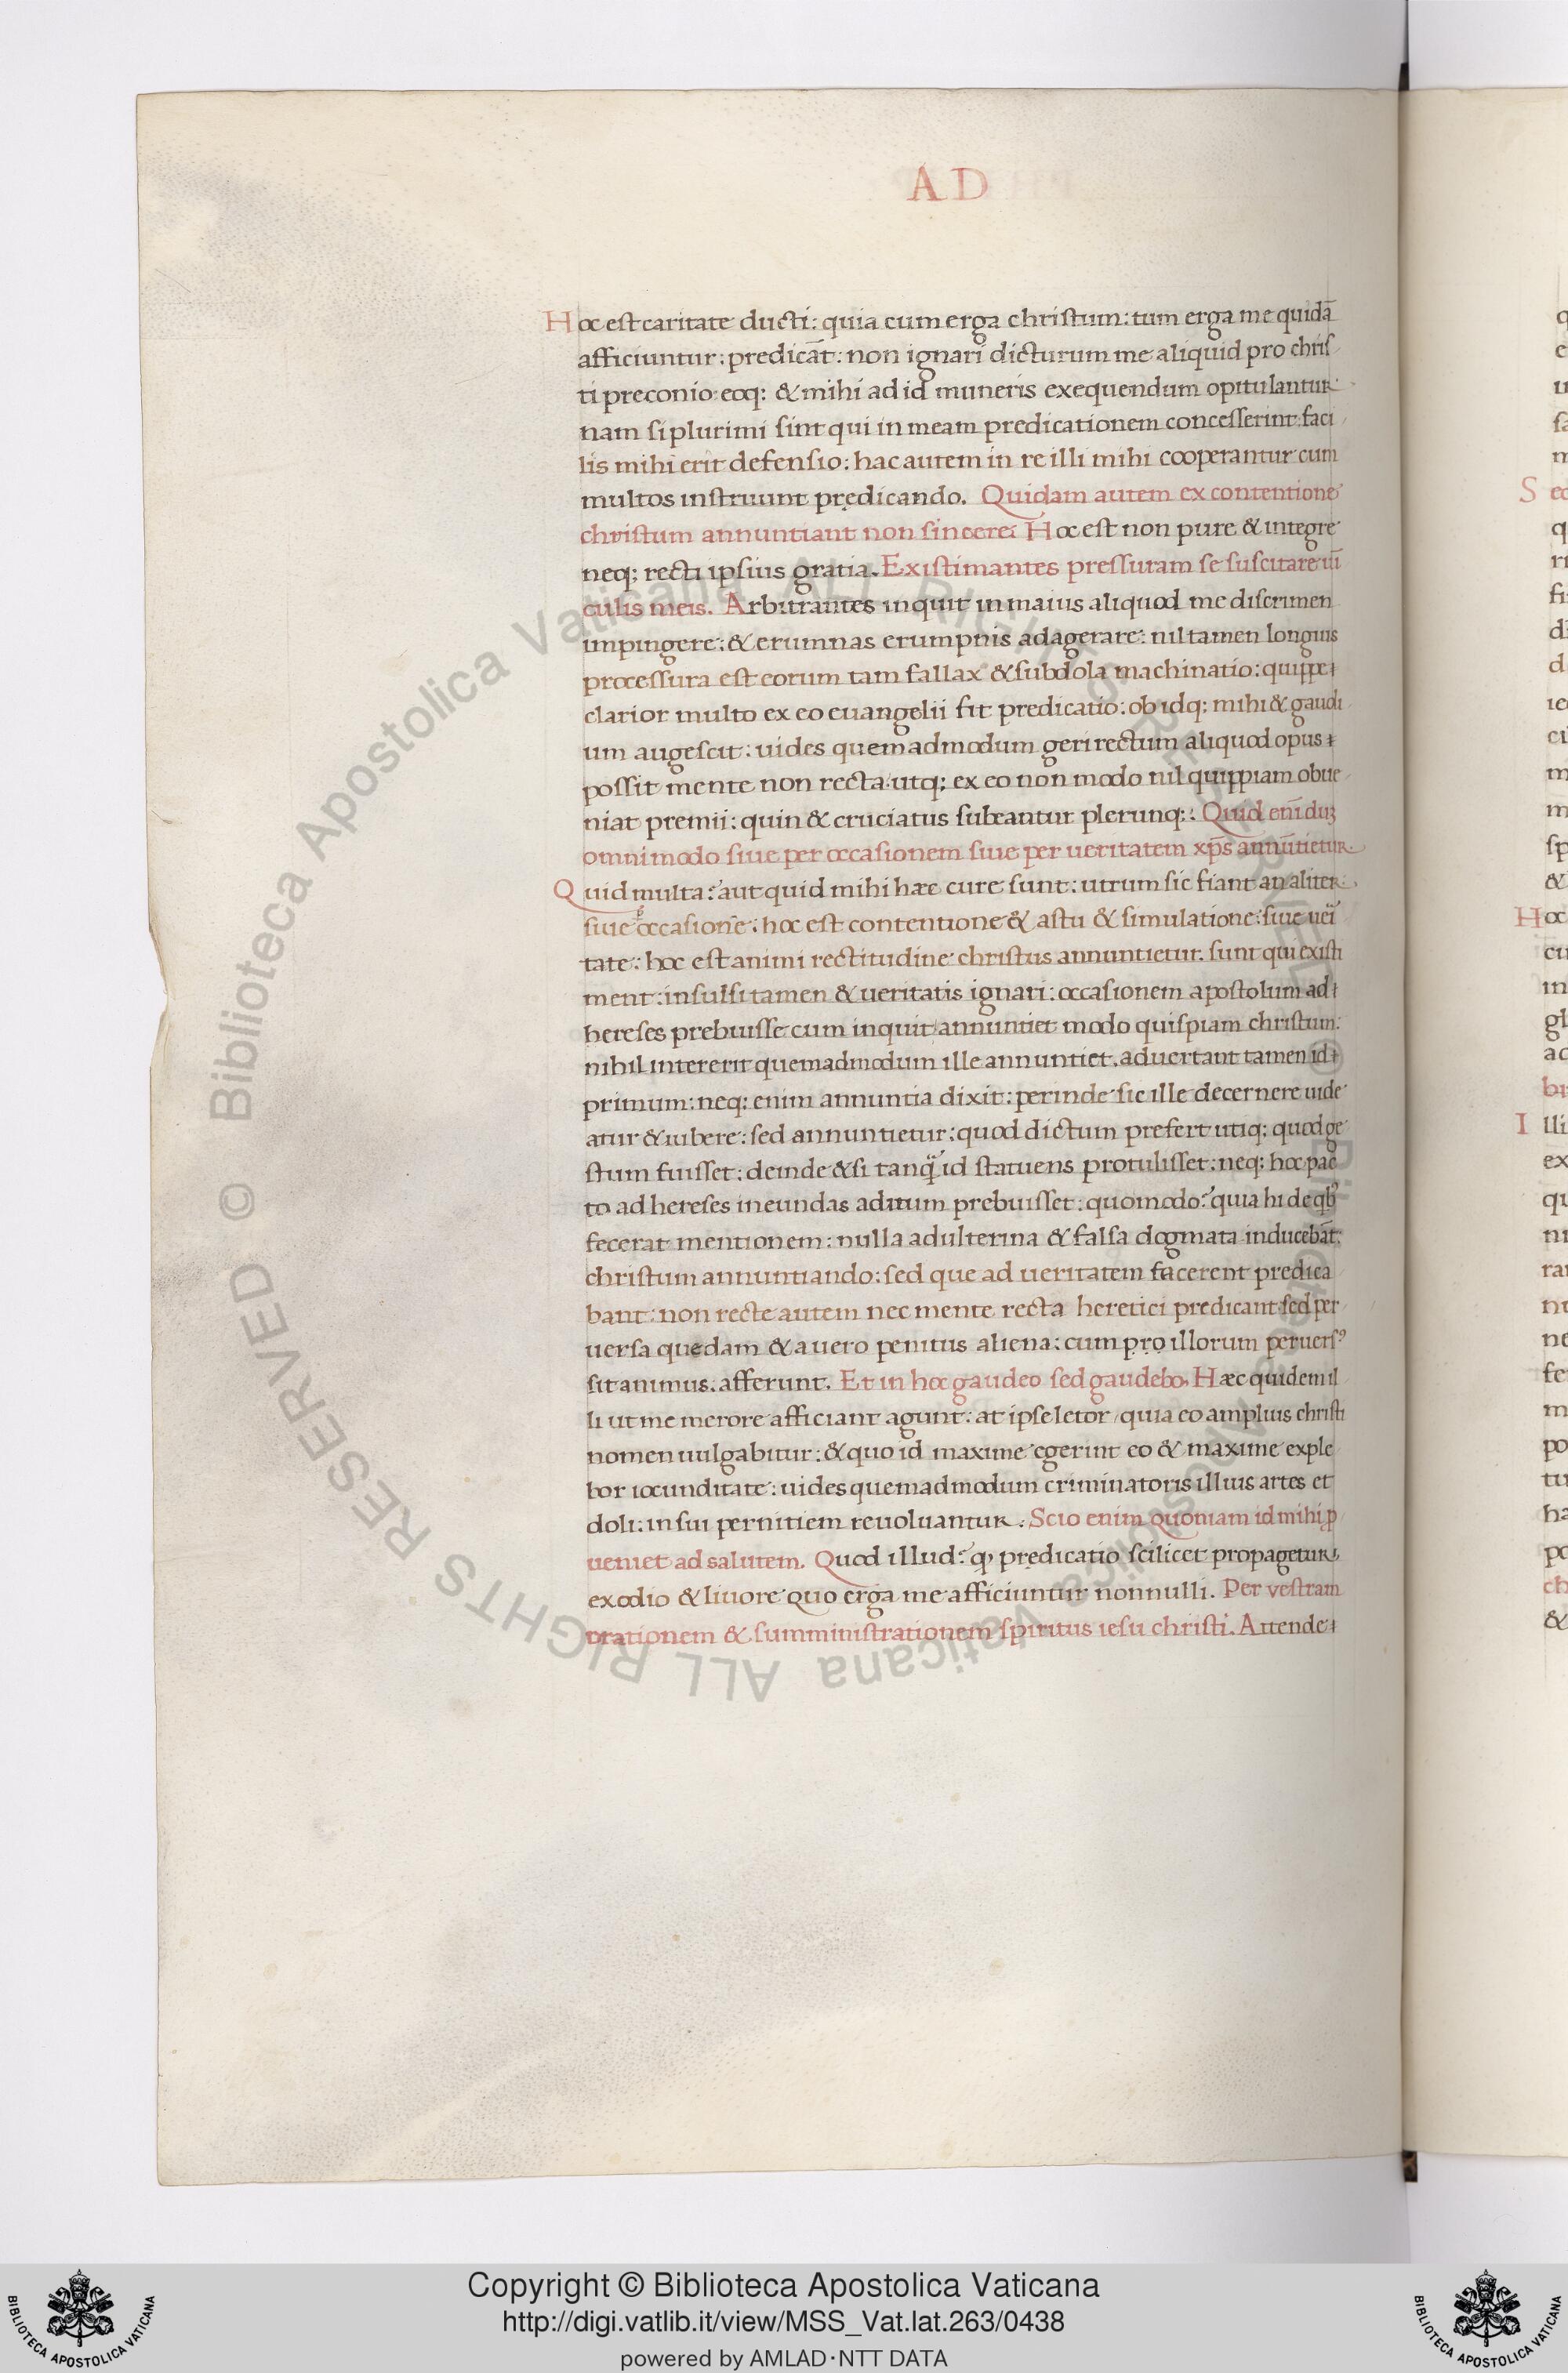 AD
Hoc est caritate ducti: quia cum erga christum: tum erga me quidā
afficiuntur: predicāt: non ignari dicturum me aliquid pro chris
ti preconio: eoq; & mihi ad id muneris exequendum opitulantur
nam si plurimi sint qui in meam predicationem concesserint: faci
lis mihi erit defensio: hac autem in re illi mihi cooperantur cum
multos instruunt prędicando. Quidam autem ex contentione
christum annuntiant non sincere: Hoc est non pure & integre
neq; recti ipsius gratia. Existimantes pressuram se suscitare uī
culis meis. Arbitrantes inquit in maius aliquod me discrimen
impingere: & erumnas erumpnis adagerare: nil tamen longius
processura est eorum tam fallax & subdola machinatio: quippe
clarior multo ex eo euangelii fit predicatio: ob idq; mihi & gaudi
um augescit: uides quemadmodum geri rectum aliquod opus
possit mente non recta: utq; ex eo non modo nil quippiam obue
niat premii: quin & cruciatus subeantur plerunq;: Quid eni duȝ
omni modo siue per occasionem siue per ueritatem xp̄s annūtietur
Quid multa? aut quid mihi hæc cure sunt: utrum sic fiant an aliter
siue p occasionē: hoc est contentione & astu & simulatione: siue ueri
tate: hoc est animi rectitudine: christus annuntietur. sunt qui existi
ment: insulsi tamen & ueritatis ignari: occasionem apostolum ad
hereses prebuisse cum inquit annuntiet modo quispiam christum:
nihil intererit quemadmodum ille annuntiet. aduertant tamen id
primum: neq; enim annuntia dixit: perinde sic ille decernere uide
atur & iubere: sed annuntietur: quod dictum prefert utiq; quod ge
stum fuisset: deinde & si tanq̃ id statuens protulisset: neq; hoc pac
to ad hereses ineundas aditum prebuisset: quomodo? quia hi de qb᾿
fecerat mentionem: nulla adulterina & falsa dogmata inducebāt:
christum annuntiando: sed que ad ueritatem facerent predica
bant: non recte autem nec mente recta heretici predicant sed per
uersa quedam & a uero penitus aliena: cum pro illorum peruersꝰ
sit animus. afferunt. Et in hoc gaudeo sed gaudebo. Hæc quidem il
li ut me merore afficiant agunt: at ipse letor quia eo amplius christi
nomen uulgabitur: & quo id maxime egerint eo & maxime exple
bor iocunditate: uides quemadmodum criminatoris illius artes et
doli: in sui pernitiem reuoluantur. Scio enim quoniam id mihi ꝓ
ueniet ad salutem. Quod illud? ꝙ prędicatio scilicet propagetur
ex odio & liuore quo erga me afficiuntur nonnulli. Per vestram
orationem & sumministrationem spiritus iesu christi. Attende
© Biblioteca Apostolica Vaticana ALL RIGHTS RESERVED
Copyright © Biblioteca Apostolica Vaticana
http://digi.vatlib.it/view/MSS_Vat.lat.263/0438
powered by AMLAD·NTT DATA
BIBLIOTECA APOSTOLICA VATICANA
BIBLIOTECA APOSTOLICA VATICANA